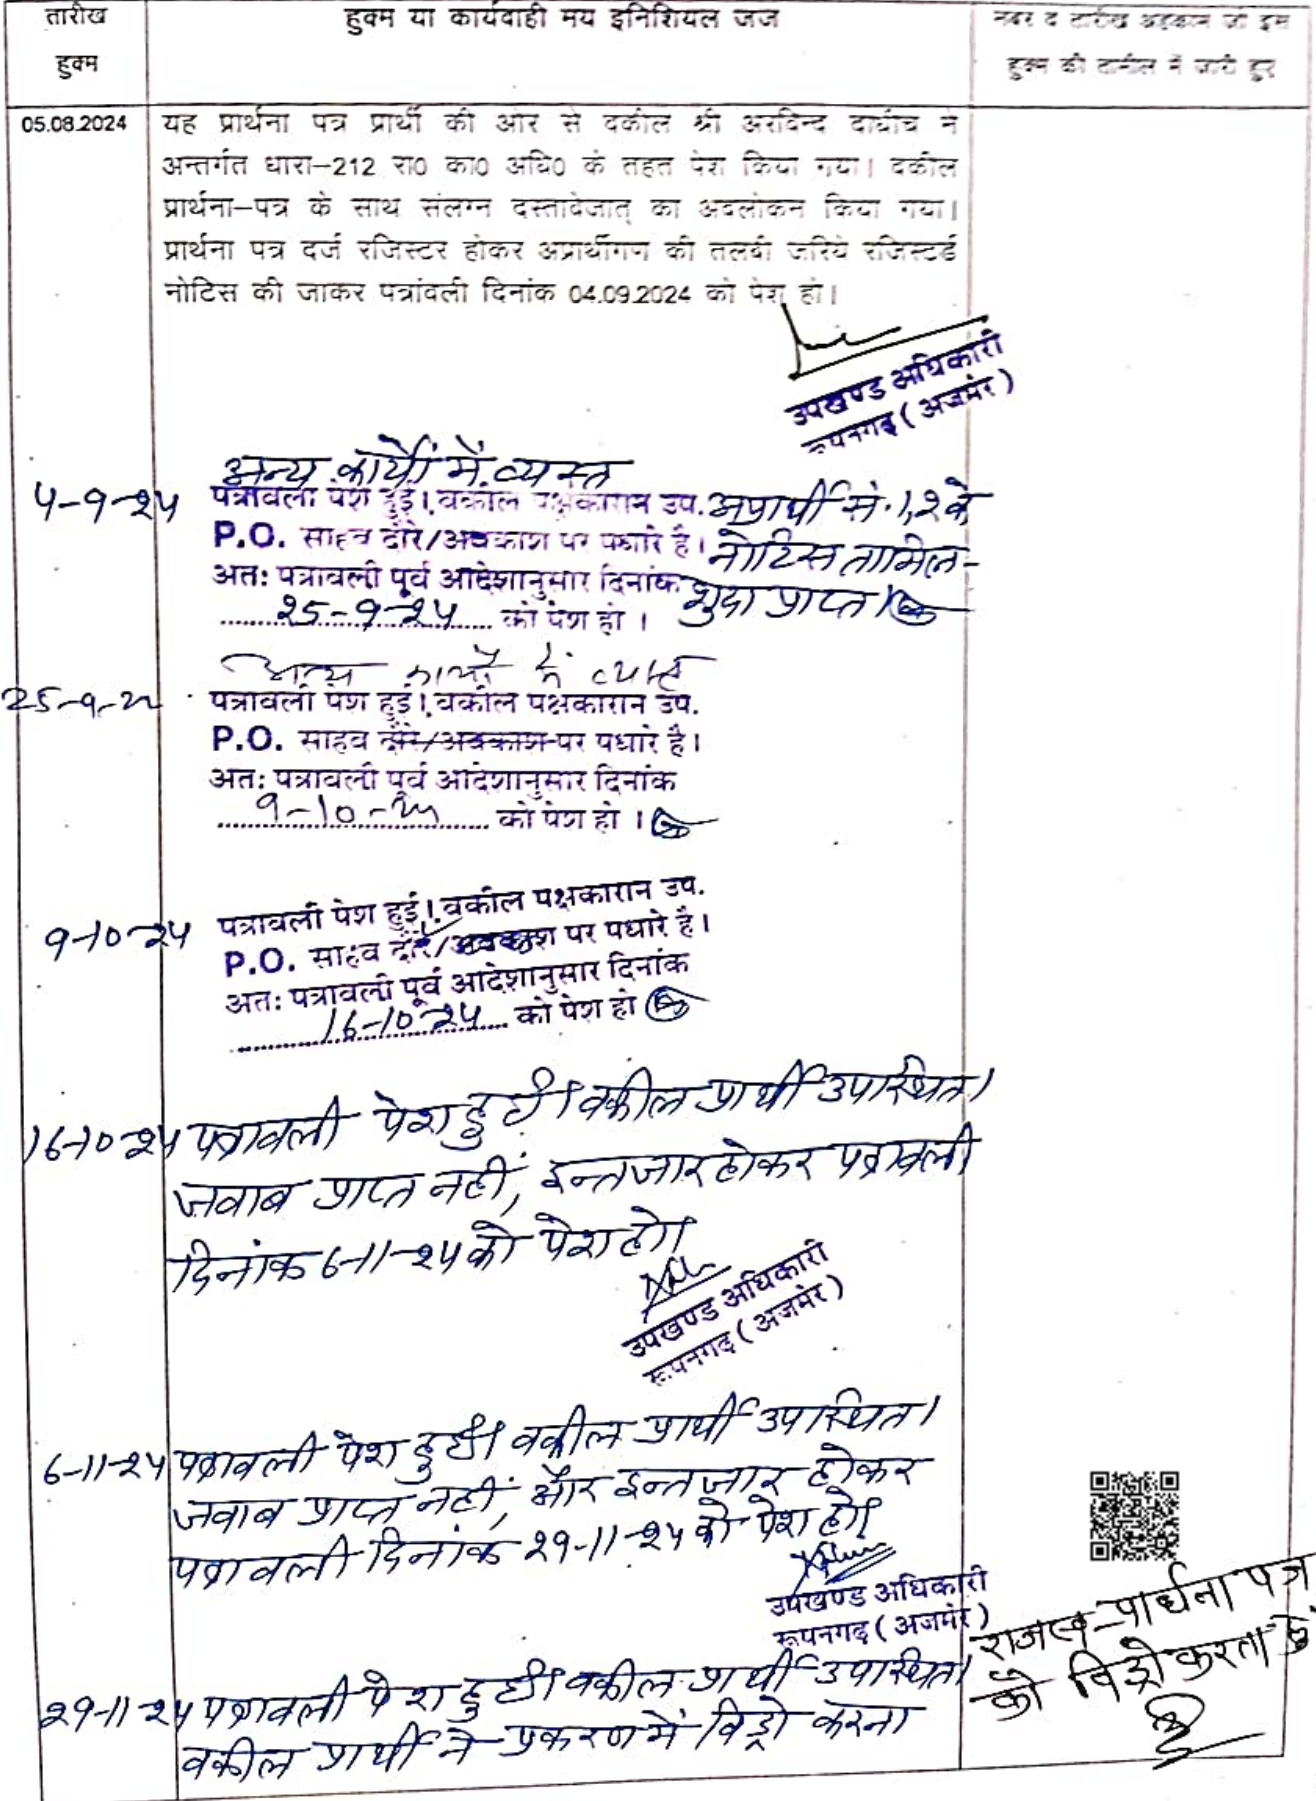 तारीख
हुक्म
हुक्म या कार्यवाही मय इनिशियल जज
नंबर व तारीख अहकाम जो इस
हुक्म की तामील में जारी हुए
05.08.2024
यह प्रार्थना पत्र प्रार्थी की ओर से वकील श्री अरविन्द दाधीच ने
अन्तर्गत धारा–212 रा0 का0 अधि0 के तहत पेश किया गया। वकील
प्रार्थना–पत्र के साथ संलग्न दस्तावेजात् का अवलोकन किया गया।
प्रार्थना पत्र दर्ज रजिस्टर होकर अप्रार्थीगण की तलबी जरिये रजिस्टर्ड
नोटिस की जाकर पत्रांवली दिनांक 04.09.2024 को पेश हो।
उपखण्ड अधिकारी
रूपनगढ़ (अजमेर)
अन्य कार्यों में व्यस्त
4-9-24 पत्रावली पेश हुई। वकील पक्षकारान उप. अप्रार्थी सं. 1,2 के
P.O. साहब दौरे/अवकाश पर पधारे है। नोटिस तामिल-
अतः पत्रावली पूर्व आदेशानुसार दिनांक शुदा प्राप्त।
25-9-24 को पेश हो ।
अन्य कार्यों में व्यस्त
25-9-24 पत्रावली पेश हुई। वकील पक्षकारान उप.
P.O. साहब दौरे/अवकाश पर पधारे है।
अतः पत्रावली पूर्व आदेशानुसार दिनांक
9-10-24 को पेश हो ।
9-10-24 पत्रावली पेश हुई। वकील पक्षकारान उप.
P.O. साहब दौरे/अवकाश पर पधारे है।
अतः पत्रावली पूर्व आदेशानुसार दिनांक
16-10-24 को पेश हो
16-10-24 पत्रावली पेश हुई। वकील प्रार्थी उपस्थित।
जवाब प्राप्त नहीं, इन्तजार होकर पत्रावली
दिनांक 6-11-24 को पेश हो।
उपखण्ड अधिकारी
रूपनगढ़ (अजमेर)
6-11-24 पत्रावली पेश हुई। वकील प्रार्थी उपस्थित।
जवाब प्राप्त नहीं, और इन्तजार होकर
पत्रावली दिनांक 29-11-24 को पेश हो।
उपखण्ड अधिकारी
रूपनगढ़ (अजमेर)
29-11-24 पत्रावली पेश हुई। वकील प्रार्थी उपस्थित।
वकील प्रार्थी ने प्रकरण में विड्रो करना
प्रार्थना पत्र
को विड्रो करता हूं